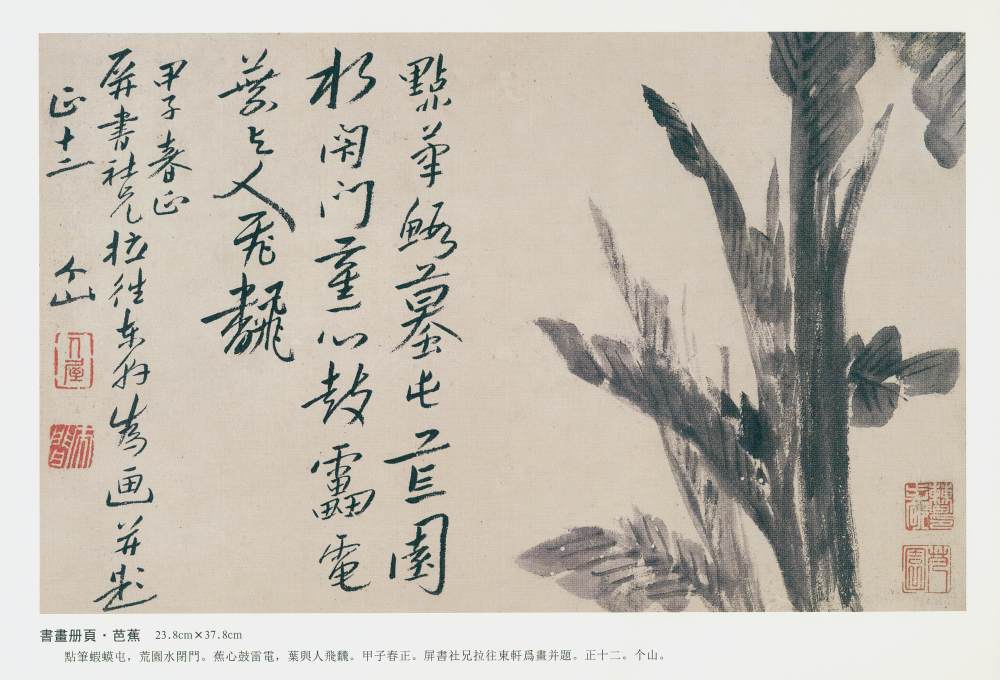 點筆蝦蟇屯荒園
水閉门蕉心鼓靁電
葉与人飛飜
甲子春正
屏書社兄拉往東軒為画并題
正十二 个山
人屋
書畫册頁·芭蕉 23.8cm×37.8cm
點筆蝦蟆屯，荒園水閉門。蕉心鼓雷電，葉與人飛飜。甲子春正。屏書社兄拉往東軒爲畫并題。正十二。个山。